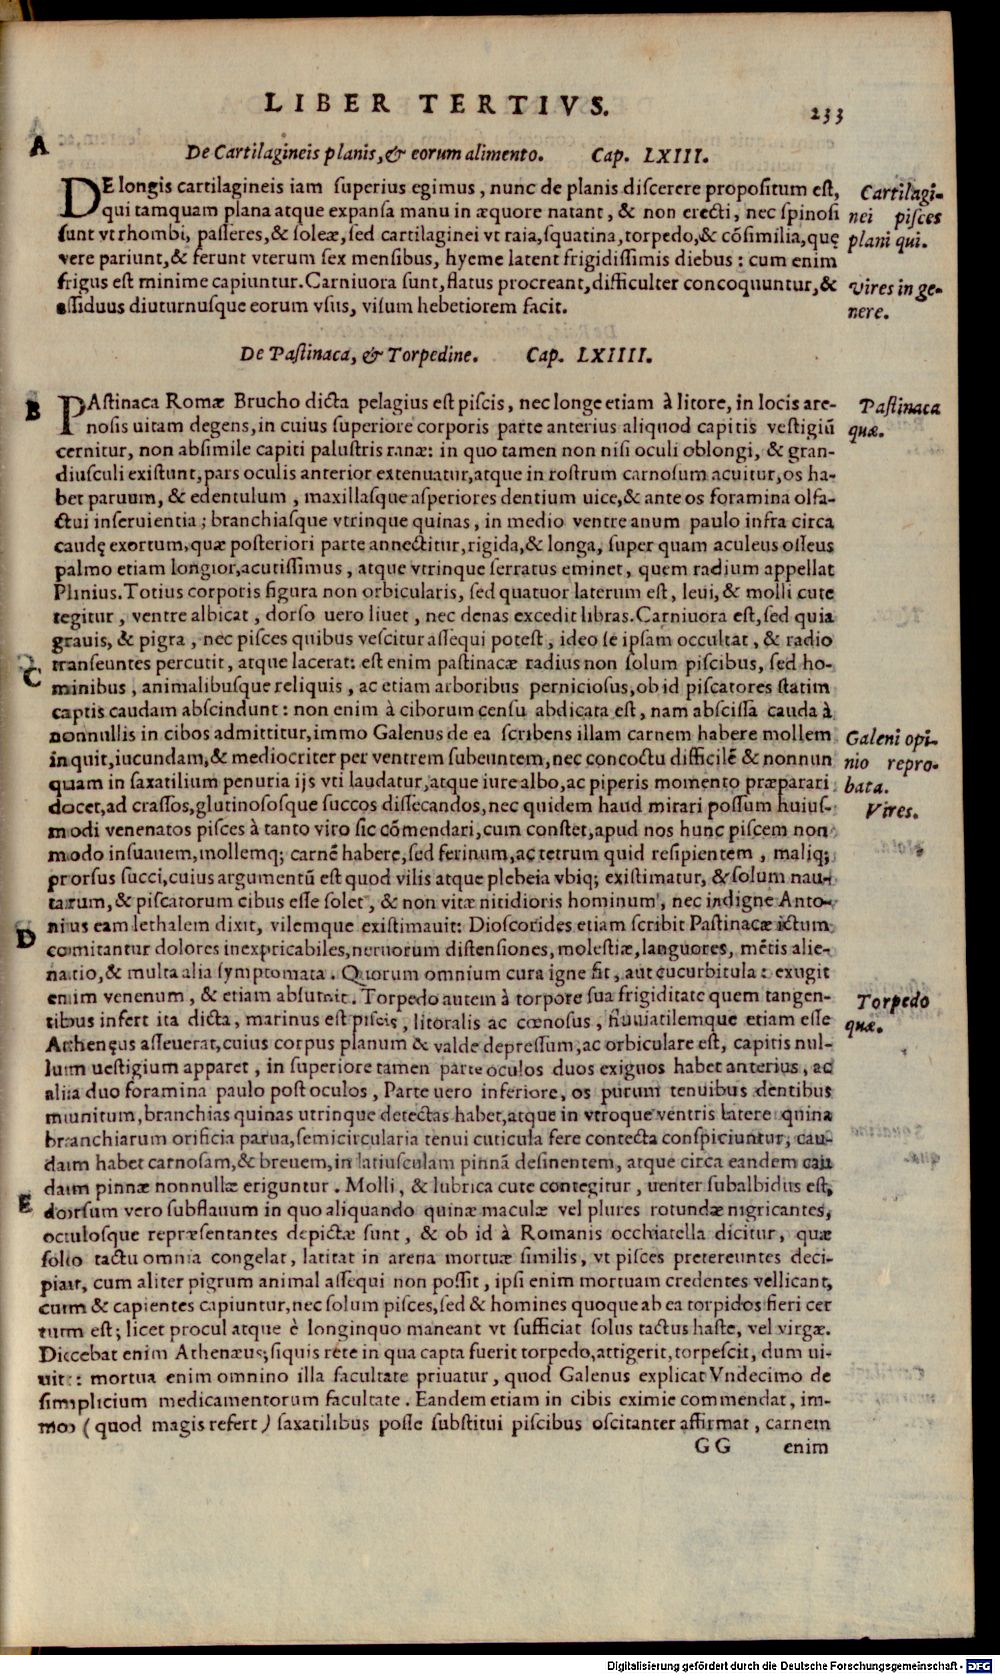 LIBER TERTIVS.
233
A
De Cartilagineis planis, & eorum alimento. Cap. LXIII.
DE longis cartilagineis iam superius egimus, nunc de planis discerere propositum est,
qui tamquam plana atque expansa manu in æquore natant, & non erecti, nec spinosi
sunt vt rhombi, passeres, & soleæ, sed cartilaginei vt raia, squatina, torpedo, & cõsimilia, quę
vere pariunt, & ferunt vterum sex mensibus, hyeme latent frigidissimis diebus: cum enim
frigus est minime capiuntur. Carniuora sunt, flatus procreant, difficulter concoquuntur, &
assiduus diuturnusque eorum vsus, visum hebetiorem facit.
Cartilagi-
nei pisces
plani qui.
Vires in ge-
nere.
De Pastinaca, & Torpedine. Cap. LXIIII.
B
PAstinaca Romæ Brucho dicta pelagius est piscis, nec longe etiam à litore, in locis are-
nosis uitam degens, in cuius superiore corporis parte anterius aliquod capitis vestigiũ
cernitur, non absimile capiti palustris ranæ: in quo tamen non nisi oculi oblongi, & gran-
diusculi existunt, pars oculis anterior extenuatur, atque in rostrum carnosum acuitur, os ha-
bet paruum, & edentulum, maxillasque asperiores dentium uice, & ante os foramina olfa-
ctui inseruientia; branchiasque vtrinque quinas, in medio ventre anum paulo infra circa
caudę exortum, quæ posteriori parte annectitur, rigida, & longa, super quam aculeus osseus
palmo etiam longior, acutissimus, atque vtrinque serratus eminet, quem radium appellat
Plinius. Totius corporis figura non orbicularis, sed quatuor laterum est, leui, & molli cute
tegitur, ventre albicat, dorso uero liuet, nec denas excedit libras. Carniuora est, sed quia
grauis, & pigra, nec pisces quibus vescitur assequi potest, ideo se ipsam occultat, & radio
transeuntes percutit, atque lacerat: est enim pastinacæ radius non solum piscibus, sed ho-
minibus, animalibusque reliquis, ac etiam arboribus perniciosus, ob id piscatores statim
captis caudam abscindunt: non enim à ciborum censu abdicata est, nam abscissa cauda à
nonnullis in cibos admittitur, immo Galenus de ea scribens illam carnem habere mollem
inquit, iucundam, & mediocriter per ventrem subeuntem, nec concoctu difficilẽ & nonnun
quam in saxatilium penuria ijs vti laudatur, atque iure albo, ac piperis momento præparari
docet, ad crassos, glutinososque succos dissecandos, nec quidem haud mirari possum huius-
modi venenatos pisces à tanto viro sic cõmendari, cum constet, apud nos hunc piscem non
modo insuauem, mollemq; carnẽ habere, sed ferinum, ac tetrum quid resipientem, maliq;
prorsus succi, cuius argumentũ est quod vilis atque plebeia vbiq; existimatur, & solum nau-
tarum, & piscatorum cibus esse solet, & non vitæ nitidioris hominum, nec indigne Anto-
nius eam lethalem dixit, vilemque existimauit: Dioscorides etiam scribit Pastinacæ ictum
comitantur dolores inexpricabiles, neruorum distensiones, molestiæ, languores, mẽtis alie-
natio, & multa alia symptomata. Quorum omnium cura igne fit, aut cucurbitula: exugit
enim venenum, & etiam absumit. Torpedo autem à torpore sua frigiditate quem tangen-
tibus infert ita dicta, marinus est piscis, litoralis ac cœnosus, fluuiatilemque etiam esse
Athenęus asseuerat, cuius corpus planum & valde depressum, ac orbiculare est, capitis nul-
lum uestigium apparet, in superiore tamen parte oculos duos exiguos habet anterius, ac
alia duo foramina paulo post oculos, Parte uero inferiore, os putum tenuibus dentibus
munitum, branchias quinas utrinque detectas habet, atque in vtroque ventris latere quina
branchiarum orificia parua, semicircularia tenui cuticula fere contecta conspiciuntur, cau-
dam habet carnosam, & breuem, in latiusculam pinnã desinentem, atque circa eandem cau
dam pinnæ nonnullæ eriguntur. Molli, & lubrica cute contegitur, uenter subalbidus est,
dorsum vero subflauum in quo aliquando quinæ maculæ vel plures rotundæ nigricantes,
oculosque repræsentantes depictæ sunt, & ob id à Romanis occhiatella dicitur, quæ
solo tactu omnia congelat, latitat in arena mortuæ similis, vt pisces pretereuntes deci-
piat, cum aliter pigrum animal assequi non possit, ipsi enim mortuam credentes vellicant,
cum & capientes capiuntur, nec solum pisces, sed & homines quoque ab ea torpidos fieri cer
tum est; licet procul atque è longinquo maneant vt sufficiat solus tactus haste, vel virgæ.
Diccebat enim Athenæus; siquis rete in qua capta fuerit torpedo, attigerit, torpescit, dum ui-
uit: mortua enim omnino illa facultate priuatur, quod Galenus explicat Vndecimo de
simplicium medicamentorum facultate. Eandem etiam in cibis eximie commendat, im-
mo (quod magis refert) saxatilibus posse substitui piscibus oscitanter affirmat, carnem
Pastinaca
quæ.
C
Galeni opi-
nio repro-
bata.
Vires.
D
Torpedo
quæ.
E
GG enim
Digitalisierung gefördert durch die Deutsche Forschungsgemeinschaft - DFG